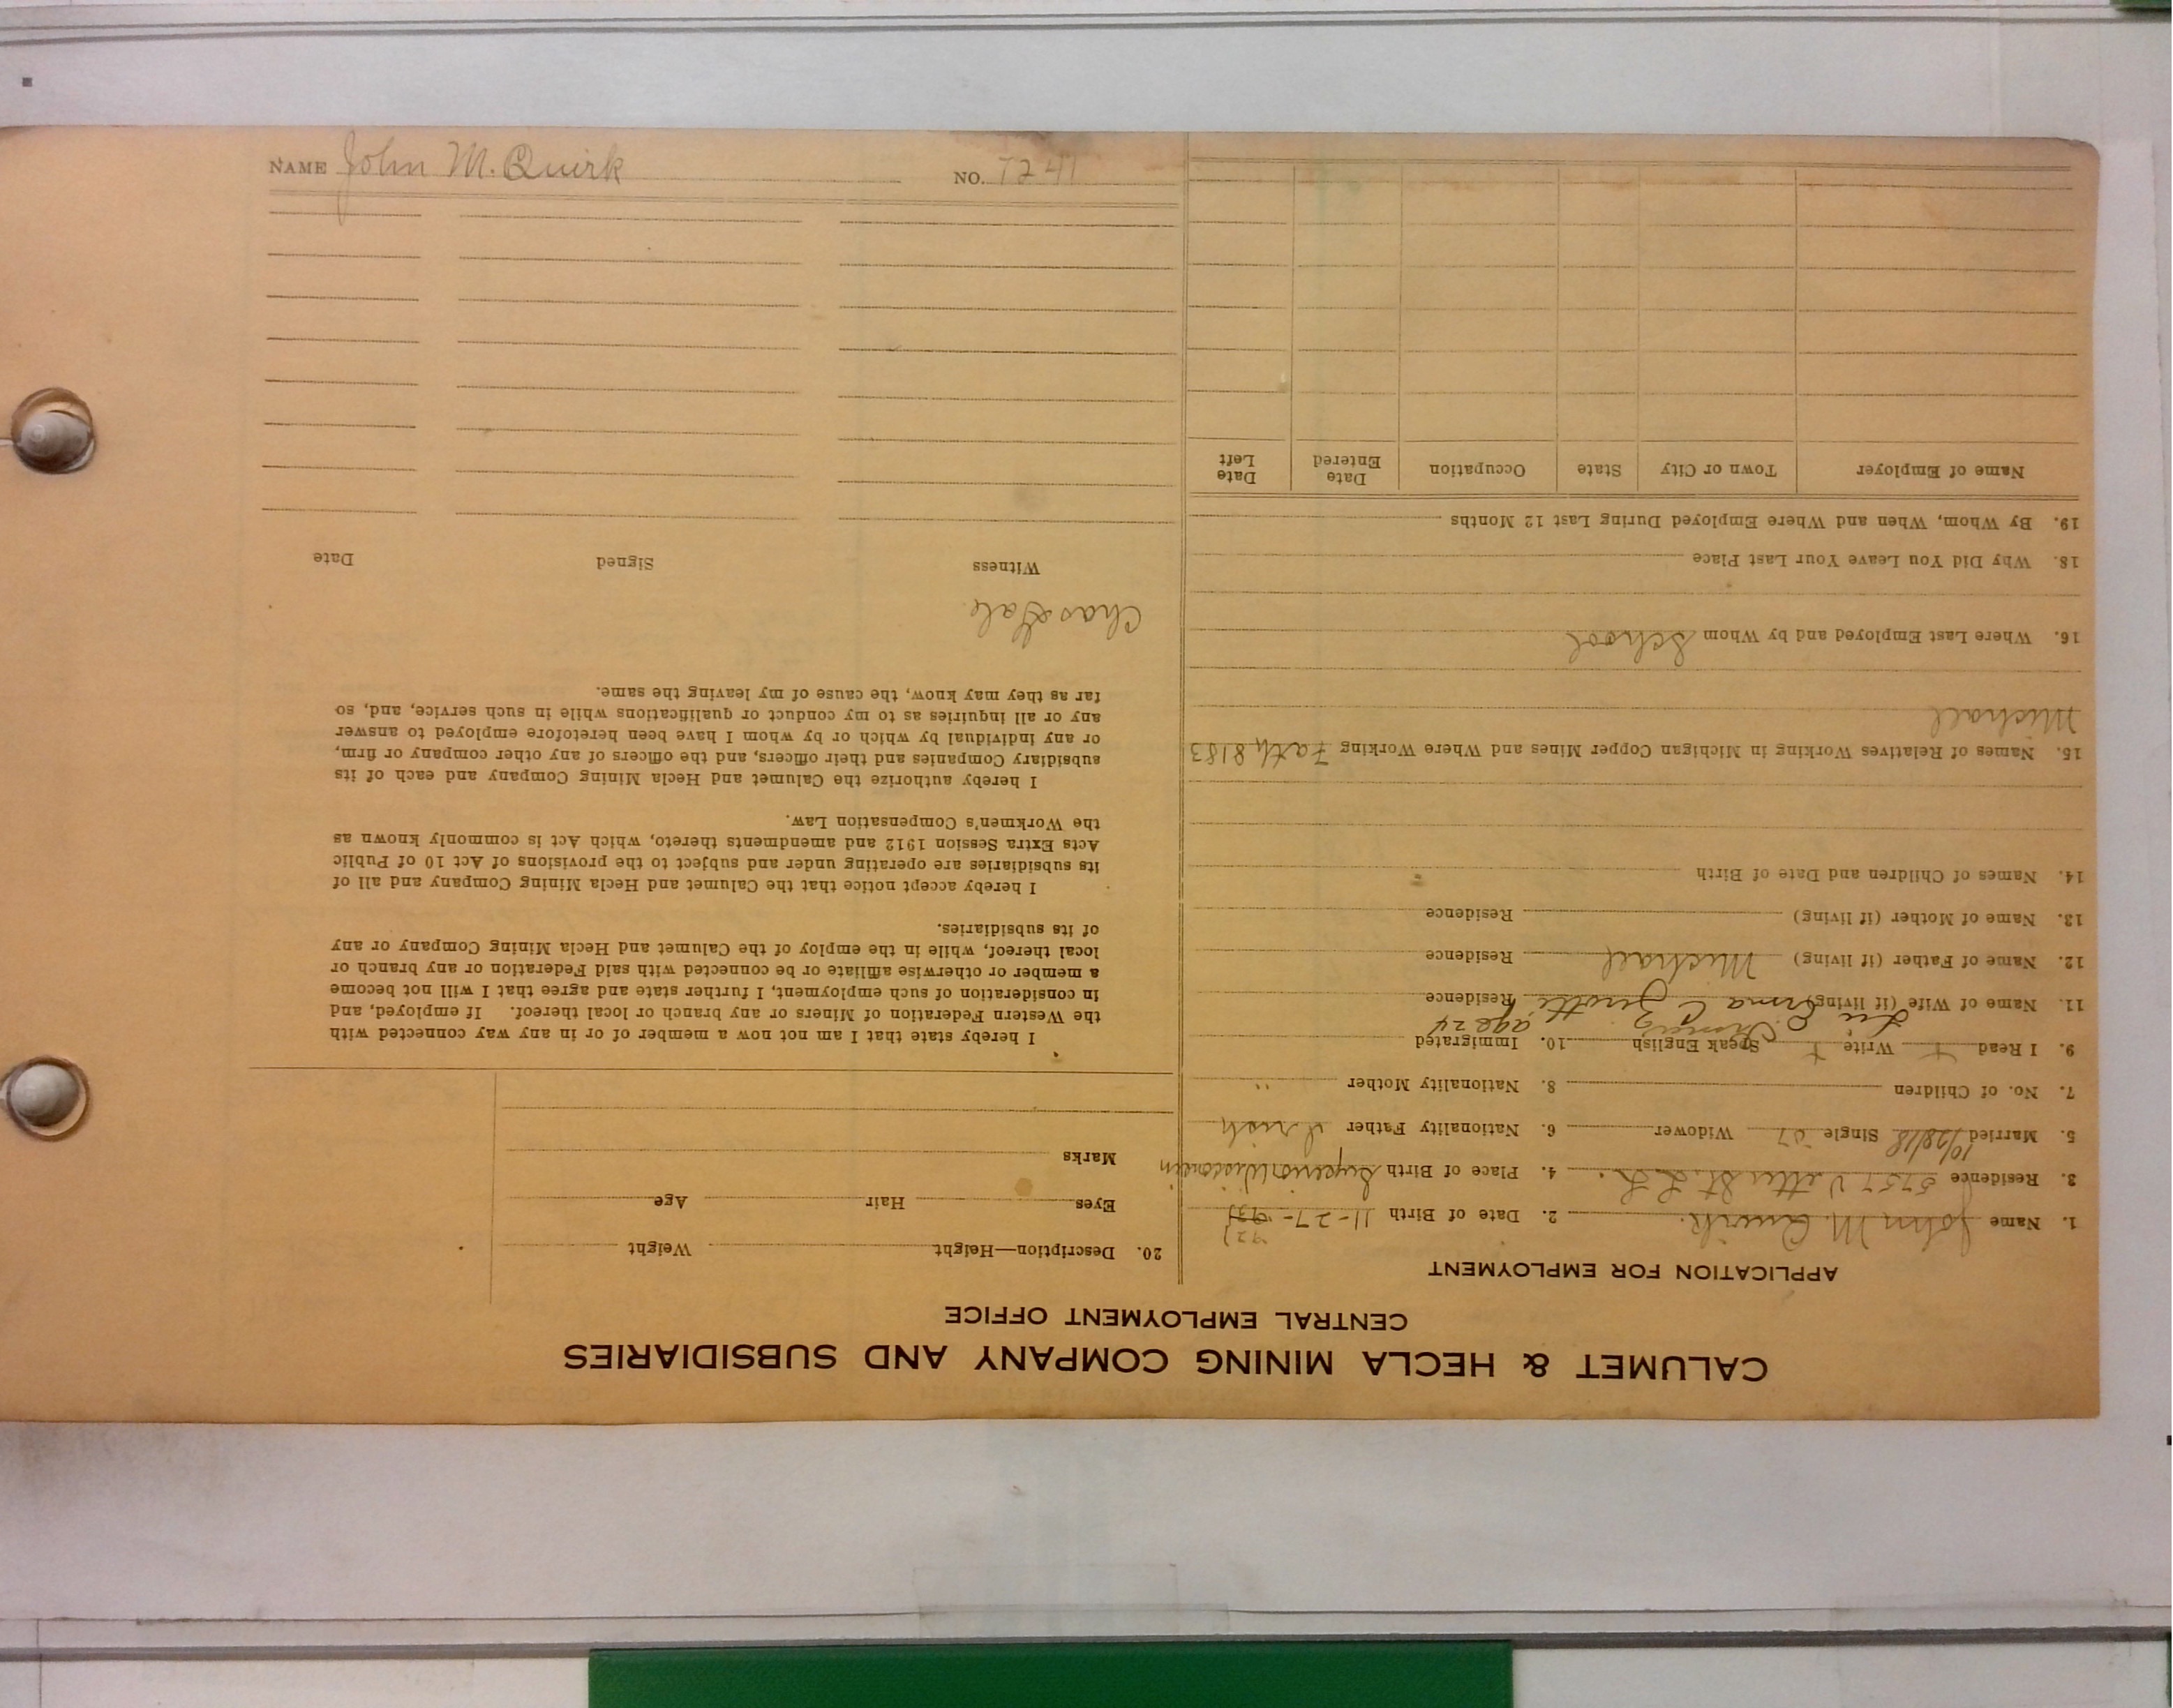 CALUMET & HECLA MINING COMPANY AND SUBSIDIARIES
CENTRAL EMPLOYMENT OFFICE
APPLICATION FOR EMPLOYMENT
1. Name John M. Quirk. 2. Date of Birth 11-27-
3. Residence 5757 St. 4. Place of Birth Superior Wisconsin
5. Married 10/28/18 Single Widower 6. Nationality Father Irish
7. No. of Children 8. Nationality Mother "
9. I Read + Write + Speak English 10. Immigrated
age 24
11. Name of Wife (if living) Erma C Residence
12. Name of Father (if living) Michael Residence
13. Name of Mother (if living) Residence
14. Names of Children and Date of Birth
15. Names of Relatives Working in Michigan Copper Mines and Where Working Fath 8183
Michael
16. Where Last Employed and by Whom School
18. Why Did You Leave Your Last Place
19. By Whom, When and Where Employed During Last 12 Months
Name of Employer Town or City State Occupation Date Entered Date Left
20. Description—Height Weight
Eyes Hair Age
Marks
I hereby state that I am not now a member of or in any way connected with
the Western Federation of Miners or any branch or local thereof. If employed, and
in consideration of such employment, I further state and agree that I will not become
a member or otherwise affiliate or be connected with said Federation or any branch or
local thereof, while in the employ of the Calumet and Hecla Mining Company or any
of its subsidiaries.
I hereby accept notice that the Calumet and Hecla Mining Company and all of
its subsidiaries are operating under and subject to the provisions of Act 10 of Public
Acts Extra Session 1912 and amendments thereto, which Act is commonly known as
the Workmen's Compensation Law.
I hereby authorize the Calumet and Hecla Mining Company and each of its
subsidiary Companies and their officers, and the officers of any other company or firm,
or any individual by which or by whom I have been heretofore employed to answer
any or all inquiries as to my conduct or qualifications while in such service, and, so
far as they may know, the cause of my leaving the same.
Chas
Witness Signed Date
NAME John M. Quirk NO. 7241